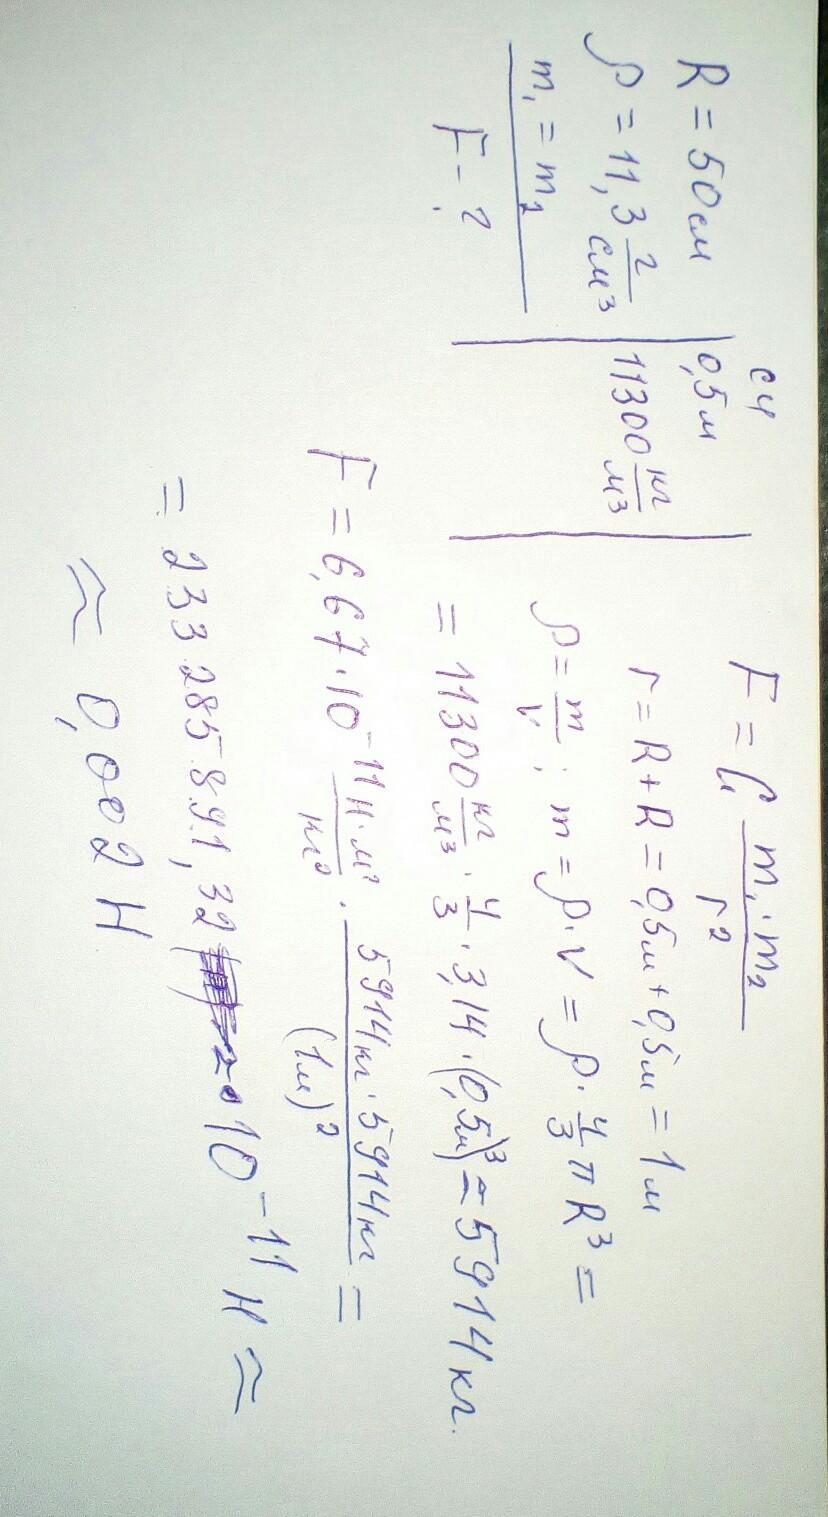 R = 50 см
ρ = 11,3 г/см³
m₁ = m₂
F - ?
СИ
0,5 м
11300 кг/м³
F = G m₁·m₂/r²
r = R + R = 0,5м + 0,5м = 1 м
ρ = m/V ; m = ρ·V = ρ · 4/3 π R³ =
= 11300 кг/м³ · 4/3 · 3,14 · (0,5м)³ = 5914 кг.
F = 6,67 · 10⁻¹¹ Н·м²/кг² · 5914кг · 5914кг/(1м)² =
= 233 285 891,32 · 10⁻¹¹ Н ≈
≈ 0,002 Н